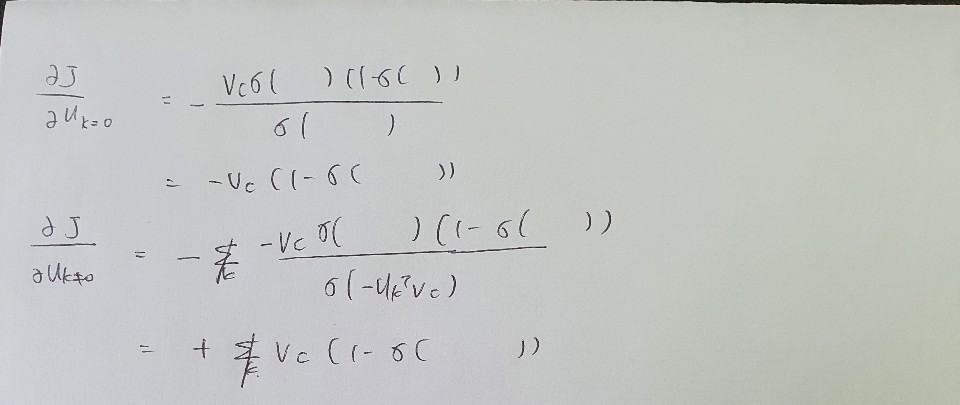 ∂J/∂U_{k=0} = - V_c σ(    ) (1-σ(   )) / σ(      )
= -V_c (1 - σ(      ))
∂J/∂U_{k≠0} = - -V_c σ(      ) (1 - σ(    )) / σ(-U_k^T V_c)
= + V_c (1 - σ(      ))